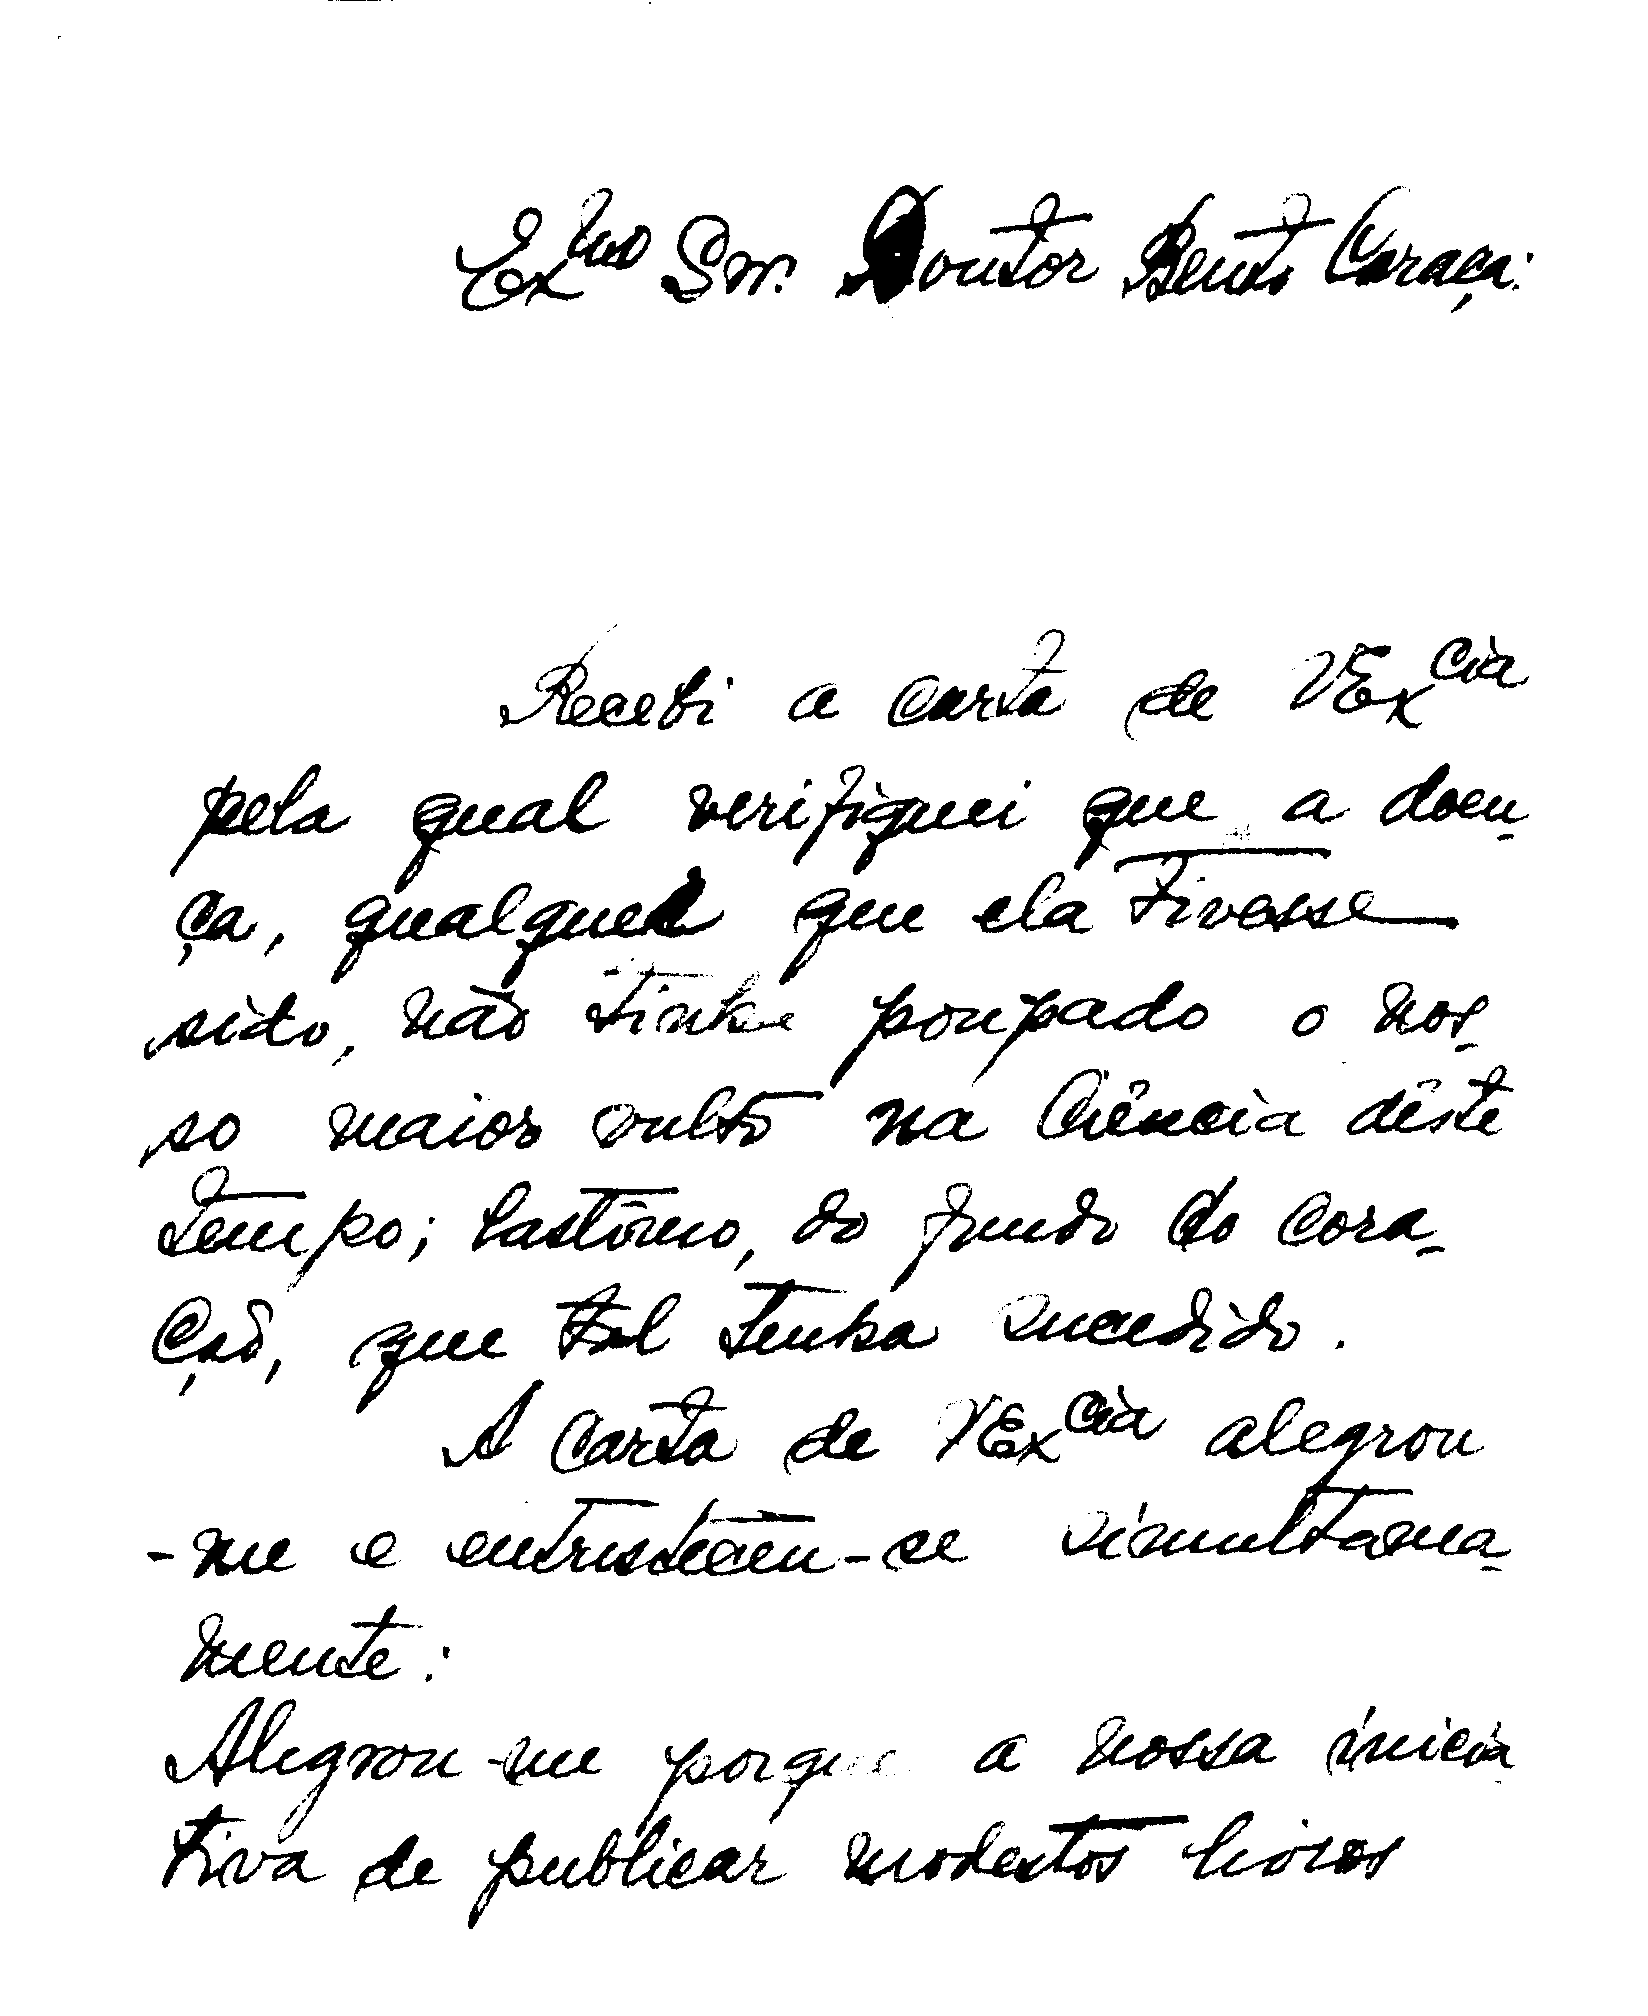 Exmo Snr. Doutor Bento Caraça:
Recebi a carta de VExcia
pela qual verifiquei que a doen-
ça, qualquer que ela tivesse
sido, não tinha poupado o nos-
so maior vulto na Ciência dêste
tempo; lastimo, do fundo do cora-
ção, que tal tenha sucedido.
A carta de VExcia alegrou
-me e entristeceu-se simultanea-
mente:
Alegrou-me porque a nossa inicia
tiva de publicar modestos livros